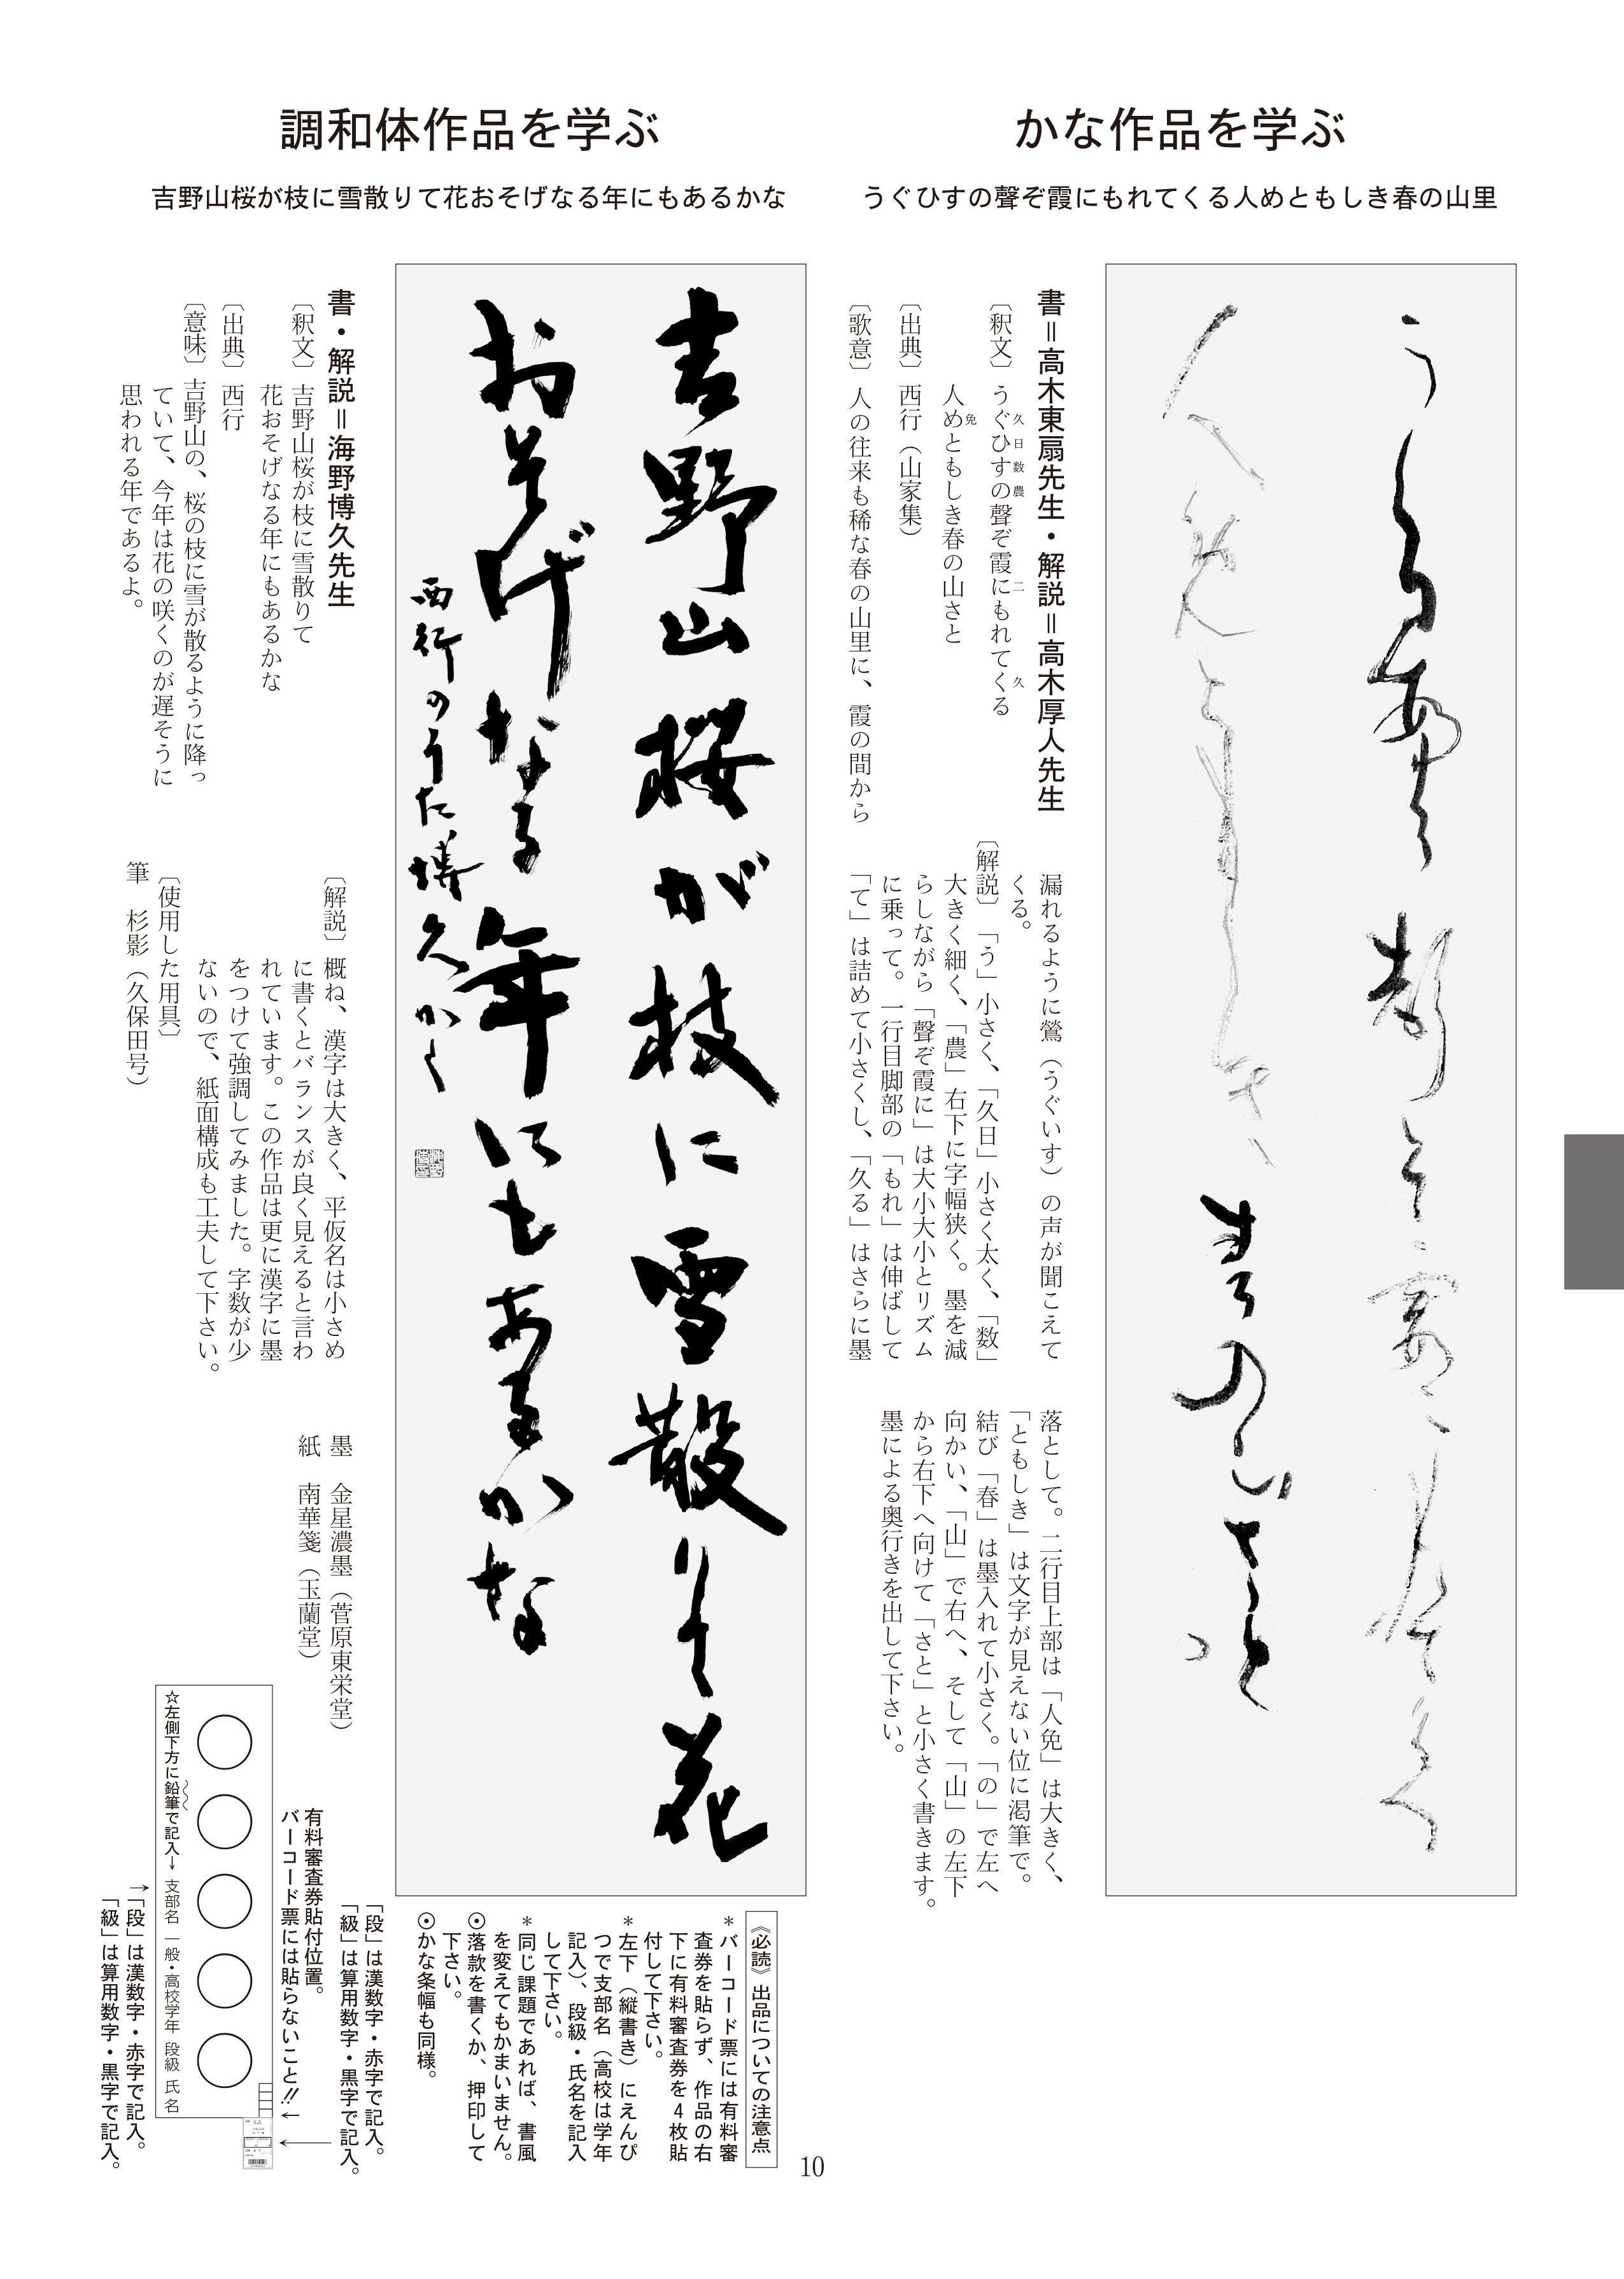 かな作品を学ぶ
うぐひすの聲ぞ霞にもれてくる人めともしき春の山里
書＝高木東扇先生・解説＝高木厚人先生
〔釈文〕うぐひすの聲ぞ霞にもれてくる
久日数農
二
久
人めともしき春の山さと
免
〔出典〕西行（山家集）
〔歌意〕人の往来も稀な春の山里に、霞の間から
漏れるように鶯（うぐいす）の声が聞こえて
くる。
〔解説〕「う」小さく、「久日」小さく太く、「数」
大きく細く、「農」右下に字幅狭く。墨を減
らしながら「聲ぞ霞に」は大小大小とリズム
に乗って。一行目脚部の「もれ」は伸ばして
「て」は詰めて小さくし、「久る」はさらに墨
落として。二行目上部は「人免」は大きく、
「ともしき」は文字が見えない位に渇筆で。
結び「春」は墨入れて小さく。「の」で左へ
向かい、「山」で右へ、そして「山」の左下
から右下へ向けて「さと」と小さく書きます。
墨による奥行きを出して下さい。
調和体作品を学ぶ
吉野山桜が枝に雪散りて花おそげなる年にもあるかな
吉野山桜が枝に雪散りて花
おそげなる年にもあるかな
西行のうた博久かく
書・解説＝海野博久先生
〔釈文〕吉野山桜が枝に雪散りて
花おそげなる年にもあるかな
〔出典〕西行
〔意味〕吉野山の、桜の枝に雪が散るように降っ
ていて、今年は花の咲くのが遅そうに
思われる年であるよ。
〔解説〕概ね、漢字は大きく、平仮名は小さめ
に書くとバランスが良く見えると言わ
れています。この作品は更に漢字に墨
をつけて強調してみました。字数が少
ないので、紙面構成も工夫して下さい。
〔使用した用具〕
筆　杉影（久保田号）
墨　金星濃墨（菅原東栄堂）
紙　南華箋（玉蘭堂）
《必読》出品についての注意点
＊バーコード票には有料審
査券を貼らず、作品の右
下に有料審査券を4枚貼
付して下さい。
＊左下（縦書き）にえんぴ
つで支部名（高校は学年
記入）、段級・氏名を記入
して下さい。
＊同じ課題であれば、書風
を変えてもかまいません。
⊙落款を書くか、押印して
下さい。
⊙かな条幅も同様。
「段」は漢数字・赤字で記入。
「級」は算用数字・黒字で記入。
有料審査券貼付位置。
バーコード票には貼らないこと!!←
☆左側下方に鉛筆で記入→ 支部名 一般・高校学年 段級 氏名
→「段」は漢数字・赤字で記入。
「級」は算用数字・黒字で記入。
10